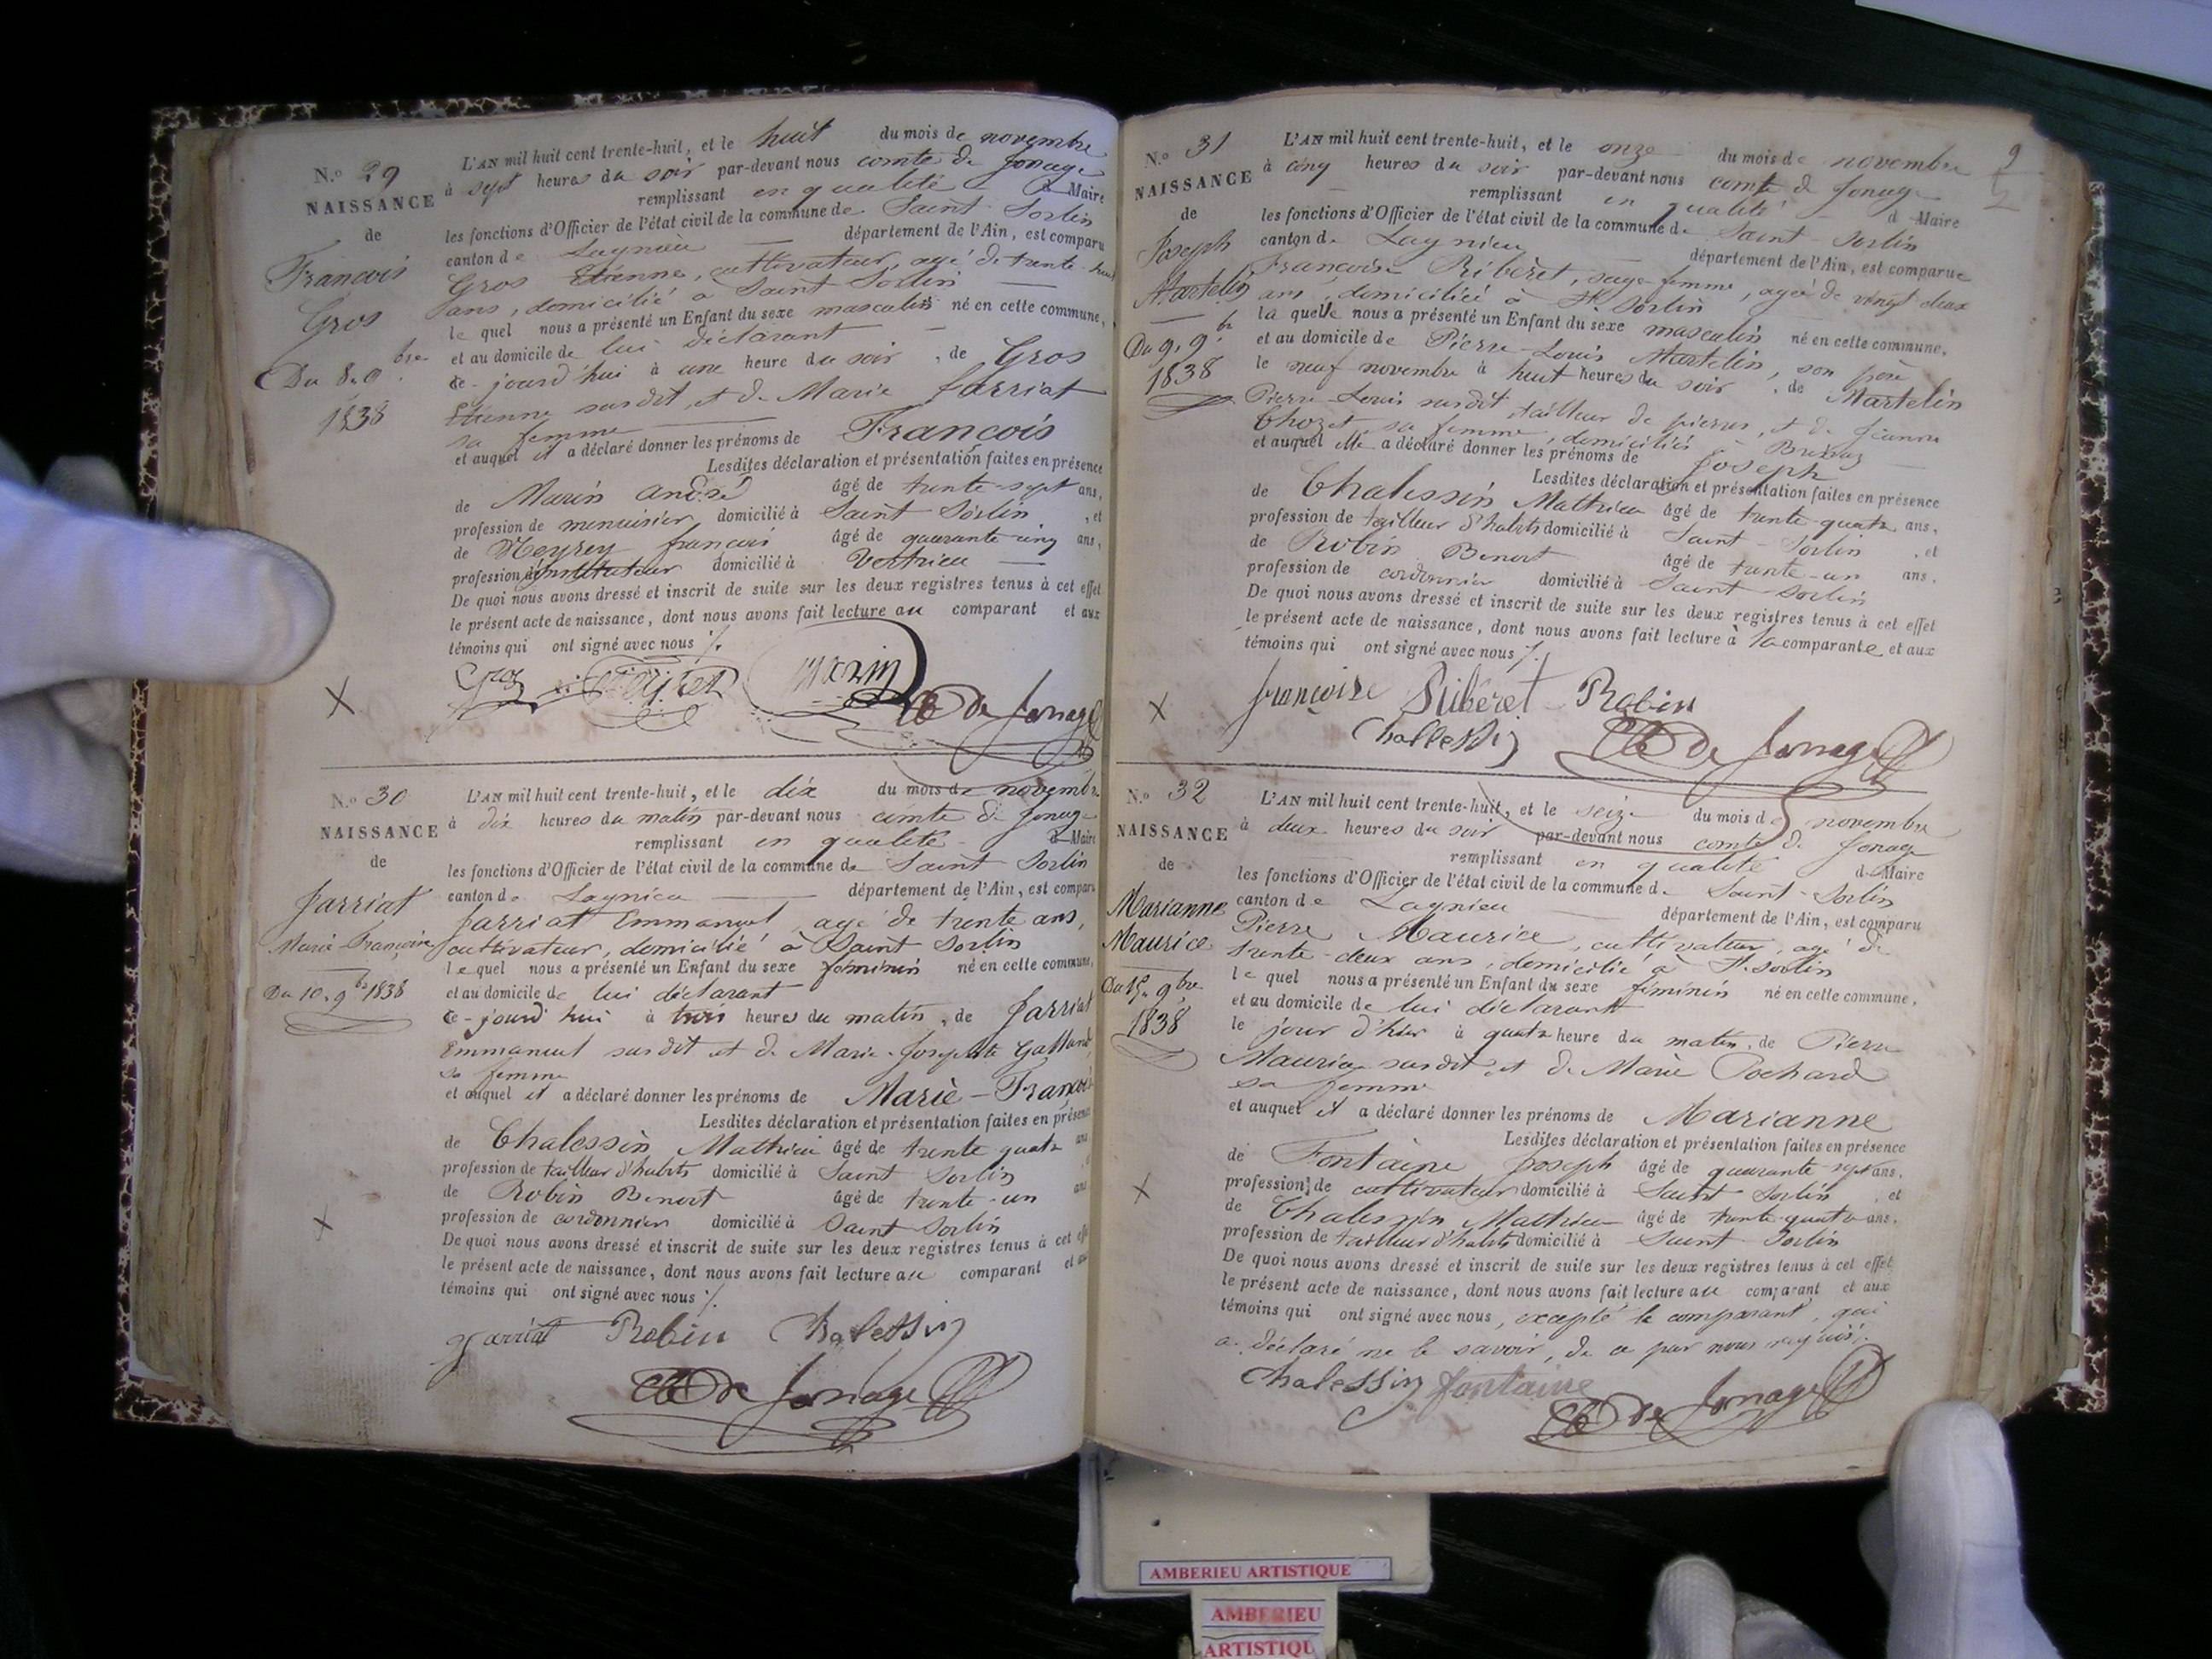 N.° 29
NAISSANCE
de
François
Gros
Du 8. 9bre
1838
L'AN mil huit cent trente-huit, et le huit du mois de novembre
à sept heures du soir par-devant nous comte de Jonage
remplissant en qualité de Maire
les fonctions d'Officier de l'état civil de la commune de Saint Sorlin
canton de Lagnieu département de l'Ain, est comparu
Gros Etienne, cultivateur, agé de trente-huit
ans, domicilié à Saint Sorlin
le quel nous a présenté un Enfant du sexe masculin né en cette commune,
et au domicile de lui déclarant
ce-jourd'hui à une heure du soir, de Gros
Etienne susdit et de Marie Jarriat
sa femme
et auquel il a déclaré donner les prénoms de François
Lesdites déclaration et présentation faites en présence
de Marin andré âgé de trente-sept ans,
profession de menuisier domicilié à Saint Sorlin, et
de Meyrey françois âgé de quarante-cinq ans,
profession d'instituteur domicilié à Vertrieu
De quoi nous avons dressé et inscrit de suite sur les deux registres tenus à cet effet
le présent acte de naissance, dont nous avons fait lecture au comparant et aux
témoins qui ont signé avec nous
Gros Marin
Cte de Jonage
N.° 30
NAISSANCE
de
Jarriat
Marie-Françoise
Du 10. 9bre 1838
L'AN mil huit cent trente-huit, et le dix du mois de novembre
à dix heures du matin par-devant nous comte de Jonage
remplissant en qualité de Maire
les fonctions d'Officier de l'état civil de la commune de Saint Sorlin
canton de Lagnieu département de l'Ain, est comparu
Jarriat Emmanuel, agé de trente ans,
cultivateur, domicilié à Saint Sorlin
le quel nous a présenté un Enfant du sexe féminin né en cette commune,
et au domicile de lui déclarant
ce-jourd'hui à trois heures du matin, de Jarriat
Emmanuel susdit et de Marie-Josephte Galland,
sa femme
et auquel il a déclaré donner les prénoms de Marie-Françoise
Lesdites déclaration et présentation faites en présence
de Chalessin Mathieu âgé de trente quatre ans
profession de tailleur d'habits domicilié à Saint Sorlin
de Robin Benoit âgé de trente-un ans
profession de cordonnier domicilié à Saint Sorlin
De quoi nous avons dressé et inscrit de suite sur les deux registres tenus à cet effet
le présent acte de naissance, dont nous avons fait lecture au comparant et aux
témoins qui ont signé avec nous
jarriat Robin Chalessin
Cte de Jonage
9
N.° 31
NAISSANCE
de
Joseph
Martelin
Du 9. 9bre
1838
L'AN mil huit cent trente-huit, et le onze du mois de novembre
à cinq heures du soir par-devant nous comte de Jonage
remplissant en qualité de Maire
les fonctions d'Officier de l'état civil de la commune de Saint-Sorlin
canton de Lagnieu département de l'Ain, est comparue
Françoise Ribèret, sage-femme, agée de vingt deux
ans, domiciliée à St Sorlin
la quelle nous a présenté un Enfant du sexe masculin né en cette commune,
et au domicile de Pierre-Louis Martelin, son père
le neuf novembre à huit heures du soir, de Martelin
Pierre-Louis susdit, tailleur de pierres, et de Jeanne
Chozet sa femme, domiciliés à
et auquel elle a déclaré donner les prénoms de Joseph
Lesdites déclaration et présentation faites en présence
de Chalessin Mathieu âgé de trente-quatre ans,
profession de tailleur d'habits domicilié à Saint-Sorlin, et
de Robin Benoit âgé de trente-un ans,
profession de cordonnier domicilié à Saint Sorlin
De quoi nous avons dressé et inscrit de suite sur les deux registres tenus à cet effet
le présent acte de naissance, dont nous avons fait lecture à la comparante et aux
témoins qui ont signé avec nous
françoise Ribéret Robin
Challessin Cte de Jonage
N.° 32
NAISSANCE
de
Marianne
Maurice
Du 15. 9bre
1838
L'AN mil huit cent trente-huit, et le seize du mois de novembre
à deux heures du soir par-devant nous comte de Jonage
remplissant en qualité de Maire
les fonctions d'Officier de l'état civil de la commune de Saint-Sorlin
canton de Lagnieu département de l'Ain, est comparu
Pierre Maurice, cultivateur, agé de
trente-deux ans, domicilié à St. Sorlin
le quel nous a présenté un Enfant du sexe féminin né en cette commune,
et au domicile de lui déclarant
le jour d'hier à quatre heure du matin, de Pierre
Maurice susdit et de Marie Pochard
sa femme
et auquel il a déclaré donner les prénoms de Marianne
Lesdites déclaration et présentation faites en présence
de Fontaine Joseph âgé de quarante-sept ans,
profession de cultivateur domicilié à Saint Sorlin, et
de Chalessin Mathieu âgé de trente-quatre ans,
profession de tailleur d'habits domicilié à Saint Sorlin
De quoi nous avons dressé et inscrit de suite sur les deux registres tenus à cet effet
le présent acte de naissance, dont nous avons fait lecture au comparant et aux
témoins qui ont signé avec nous, excepté le comparant, qui
a déclaré ne le savoir, de ce par nous requis.
Chalessin fontaine
Cte de Jonage
AMBERIEU ARTISTIQUE
AMBERIEU
ARTISTIQU